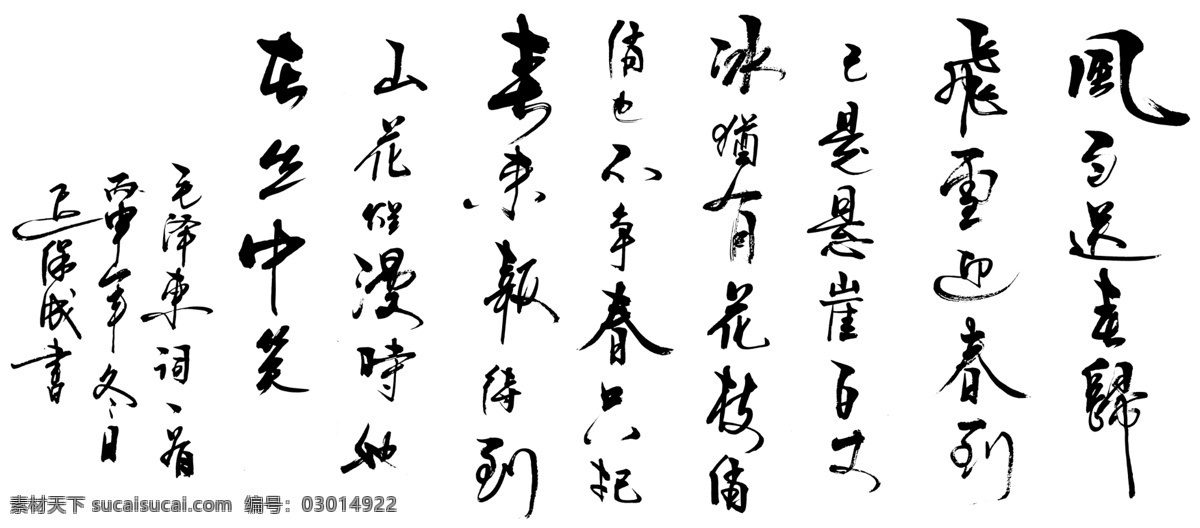 風雨送春歸
飛雪迎春到
已是悬崖百丈
冰猶有花枝俏
俏也不争春只把
春来報待到
山花烂漫時她
在丛中笑
毛泽東詞一首
丙申年冬日
保成書
素材天下 sucaisucai.com 编号：03014922